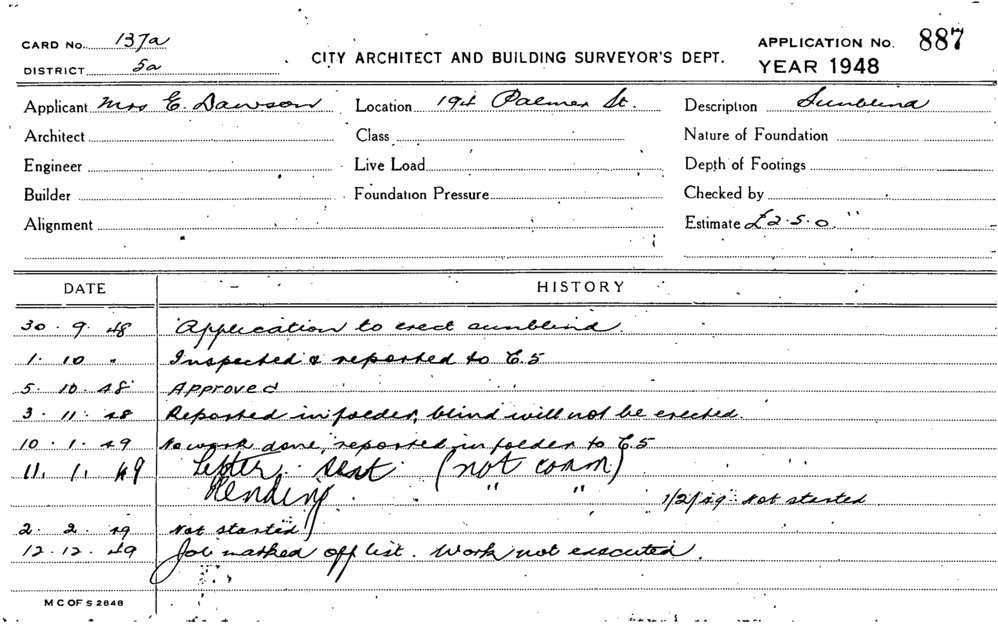 CARD No. 137a
CITY ARCHITECT AND BUILDING SURVEYOR'S DEPT.
APPLICATION No. 887
DISTRICT 5a
YEAR 1948
Applicant Mrs E. Dawson Location 194 Palmer St. Description Sunblind
Architect Class Nature of Foundation
Engineer Live Load Depth of Footings
Builder Foundation Pressure Checked by
Alignment Estimate £2.5.0
DATE HISTORY
30.9.48 Application to erect sunblind
1.10 " Inspected & reported to E.5
5.10.48 Approved
3.11.48 Reported in folder, blind will not be erected.
10.1.49 No work done, reported in folder to E.5
11.1.49 Letter sent (not comm)
Pending " " 1/2/49 Not started
2.2.49 Not started
12.12.49 Job marked off list. Work not executed.
M C OF S 2848